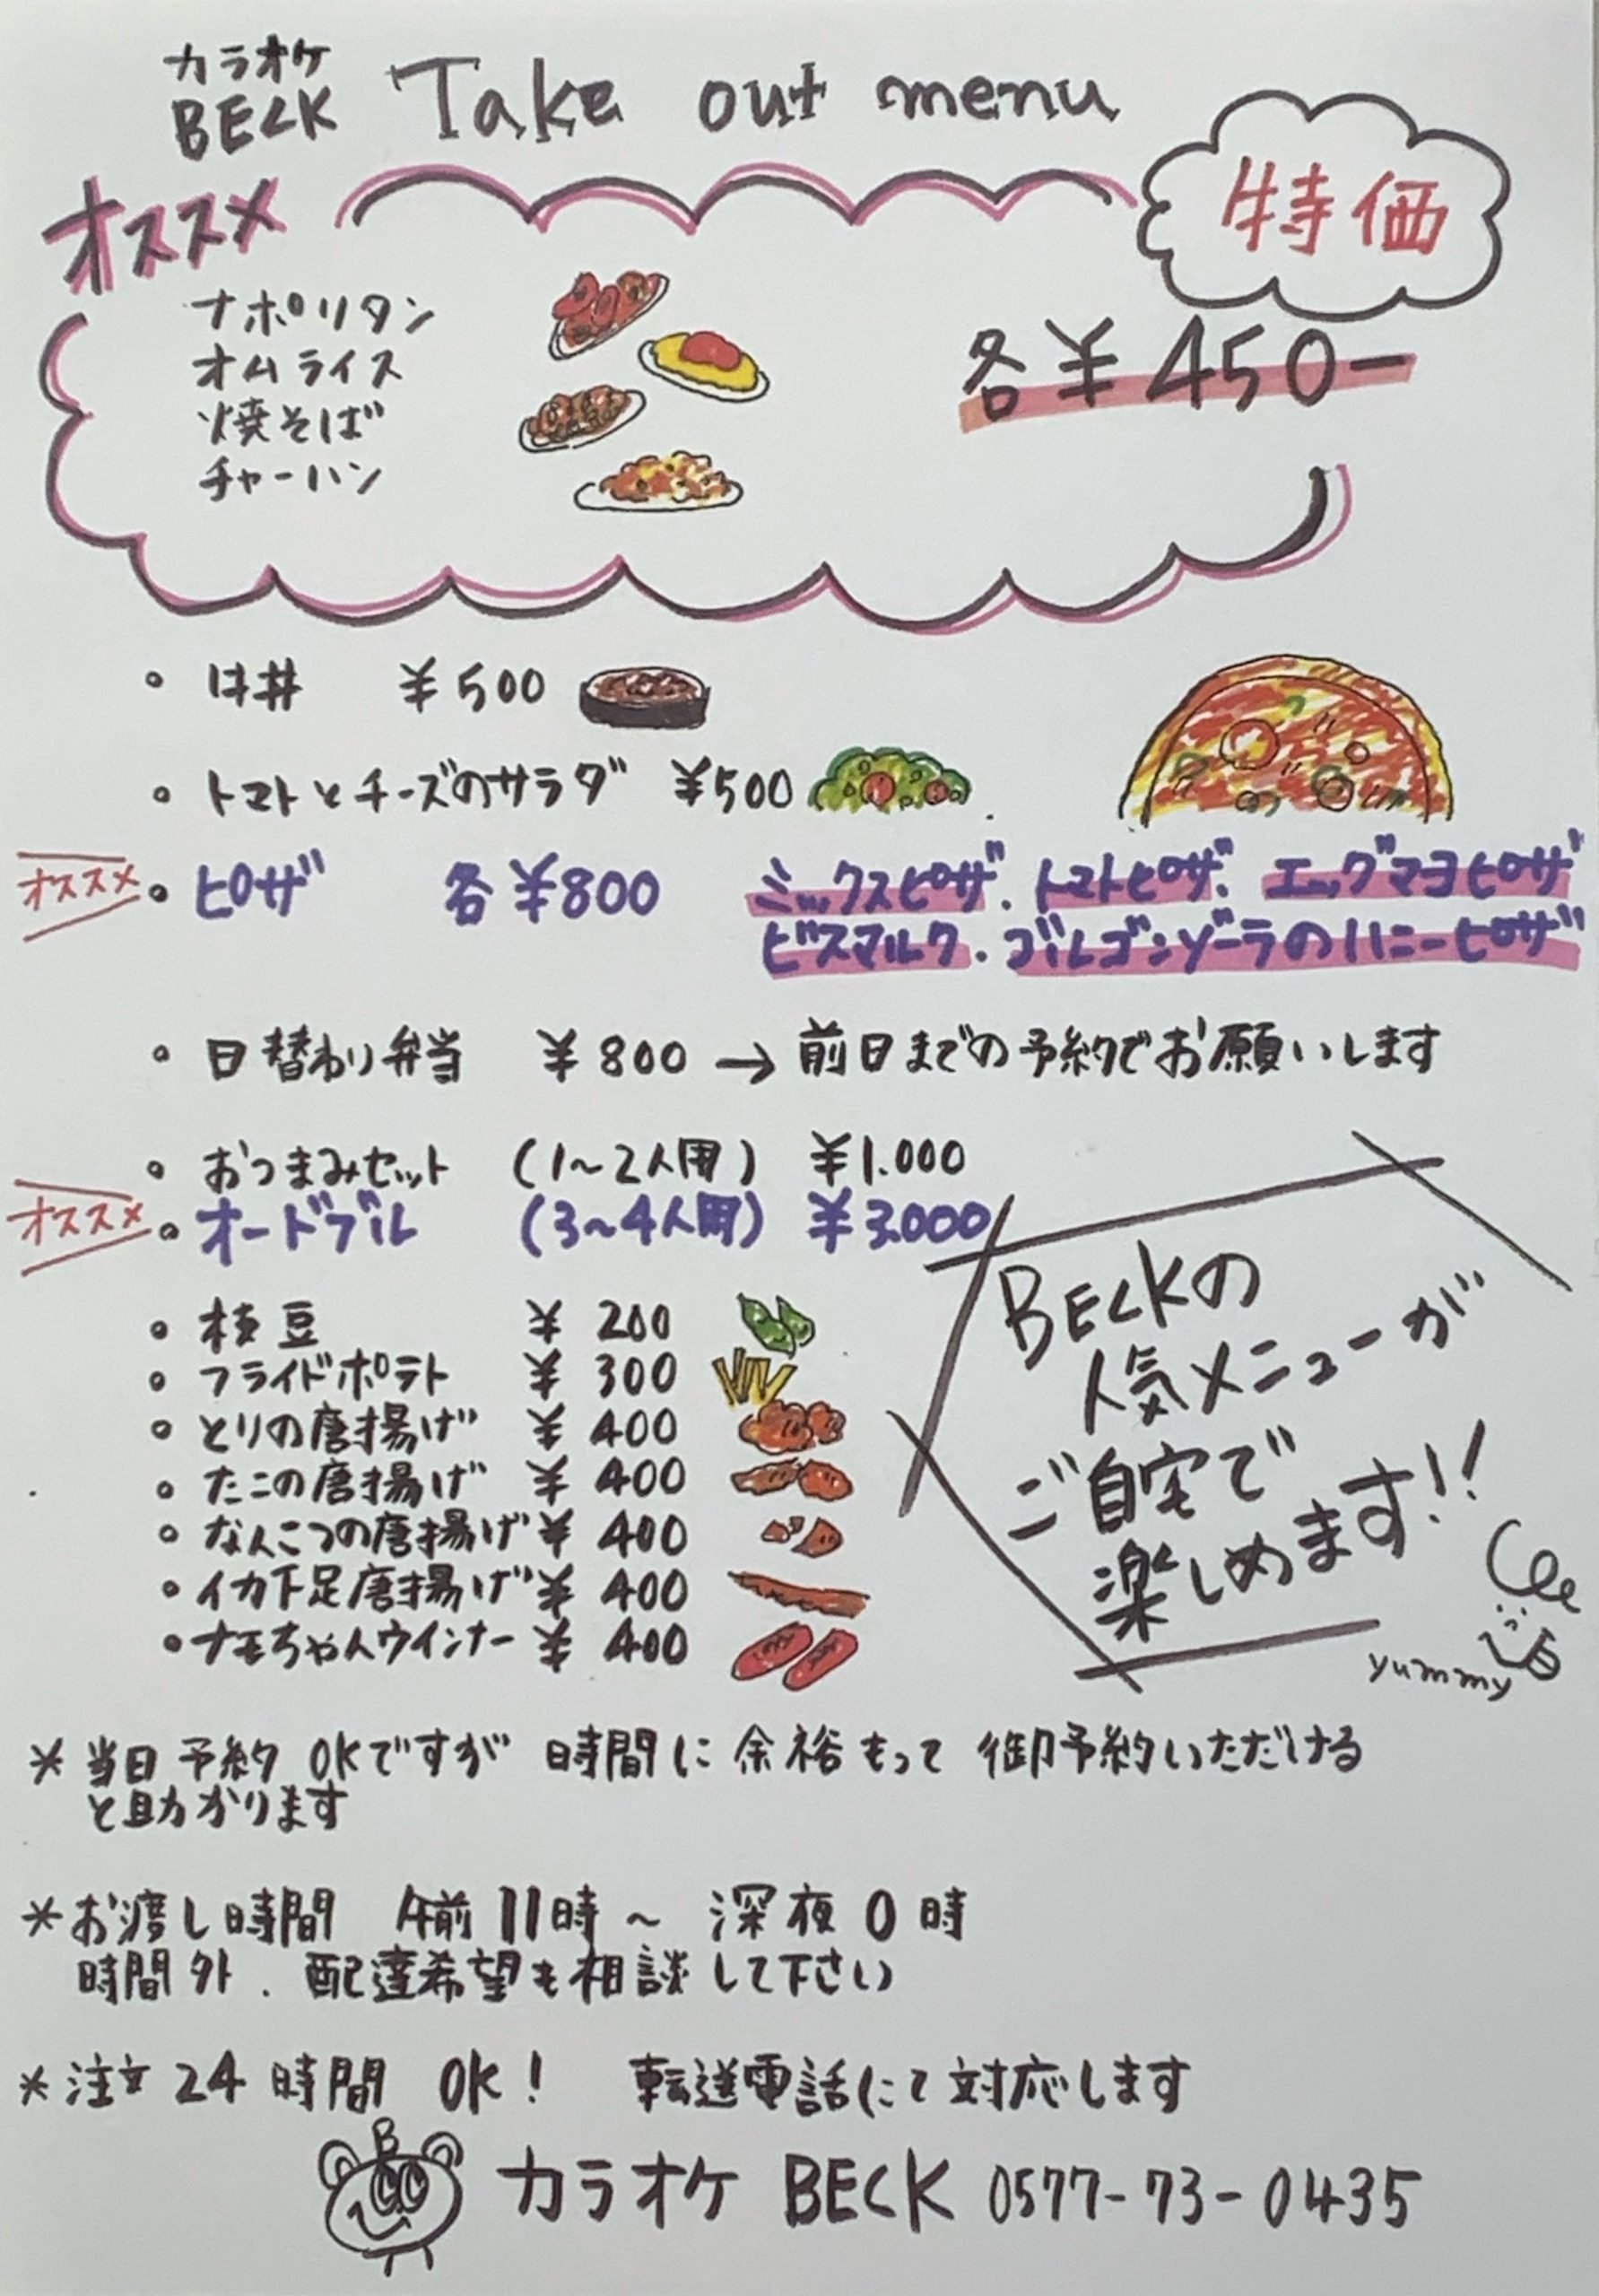 カラオケ
BECK Take out menu
オススメ
特価
ナポリタン
オムライス
焼そば
チャーハン
各¥450-
・ ¥500
・トマトとチーズのサラダ ¥500
オススメ・ピザ 各¥800 ミックスピザ.トマトピザ.エッグマヨピザ
ビスマルク.ゴルゴンゾーラのハニーピザ
・日替わり弁当 ¥800→前日までの予約でお願いします
・おつまみセット (1~2人用) ¥1.000
オススメ・オードブル (3~4人用) ¥3.000
・枝豆 ¥200
・フライドポテト ¥300
・とりの唐揚げ ¥400
・たこの唐揚げ ¥400
・なんこつの唐揚げ ¥400
・イカ下足唐揚げ ¥400
・ナモちゃんウインナー ¥400
BECKの
人気メニューが
ご自宅で
楽しめます!!
yummy
*当日予約OKですが時間に余裕もって御予約いただける
と助かります
*お渡し時間 午前11時~深夜0時
時間外.配達希望も相談して下さい
*注文24時間OK! 転送電話にて対応します
B
カラオケ BECK 0577-73-0435